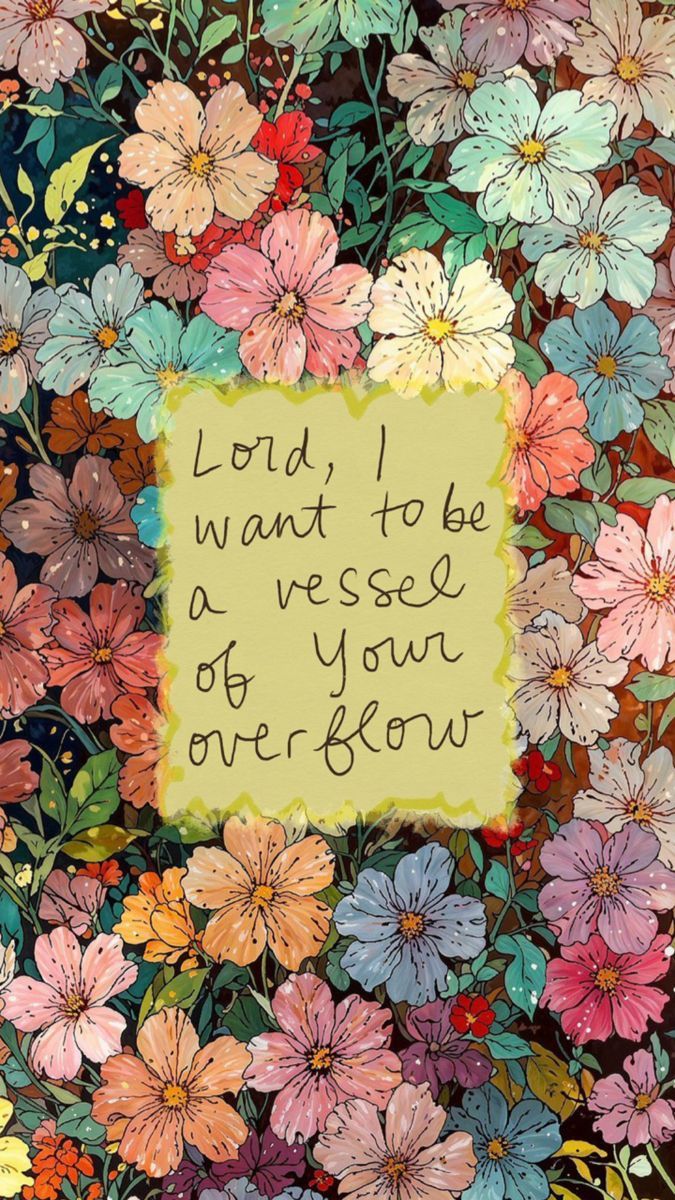 Lord, I
want to be
a vessel
of Your
overflow